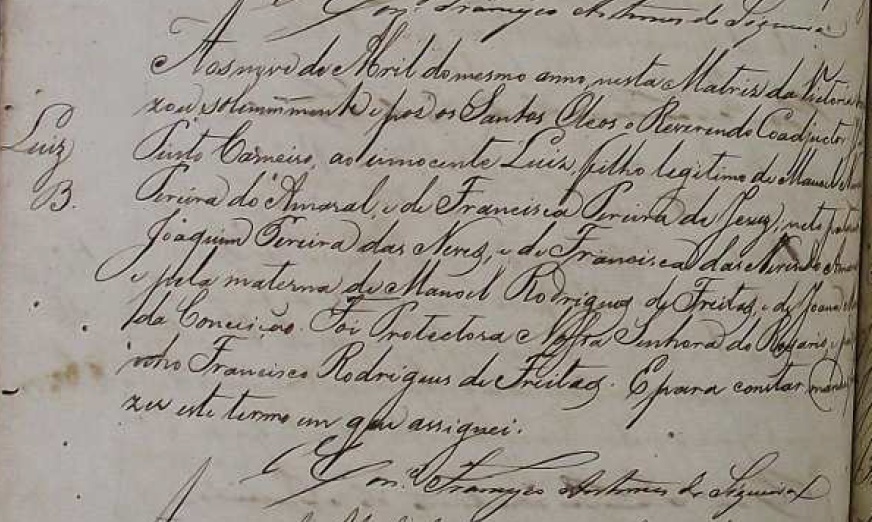 Con.º Francisco Antunes de Siqueira
Aos nove de Abril do mesmo anno, nesta Matriz da Victoria
zou solemnmente e pos os Santos Oleos o Reverendo Coadjuctor
Luiz Pinto Carneiro, ao innocente Luiz, filho legitimo de Manoel
B. Pereira do Amaral, e de Francisca Pereira de Jesus; neto
Joaquim Pereira das Neves, e de Francisca das Neves do
e pela materna de Manoel Rodrigues de Freitas, e de Joana
da Conceição. Foi Protectora Nossa Senhora do Rosario, e
inho Francisco Rodrigues de Freitas. E para constar, mandei
zer este termo em que assignei.
Con.º Francisco Antunes de Siqueira